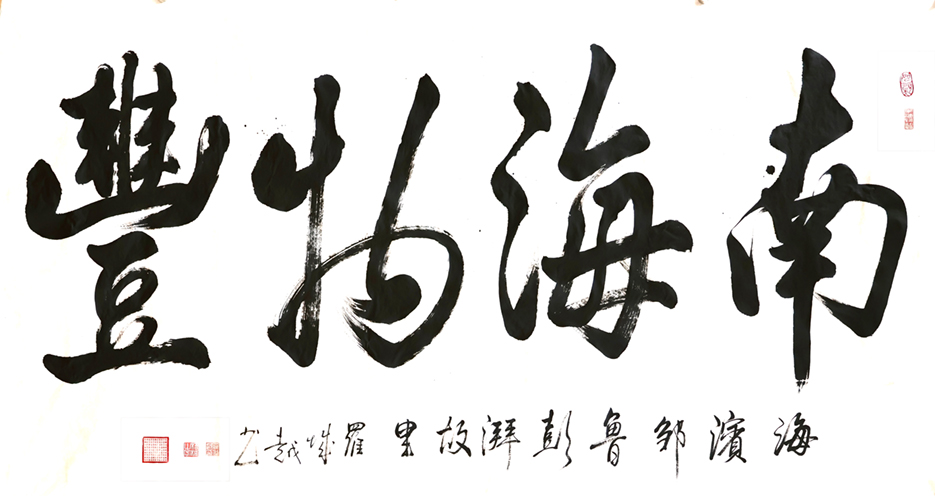 南海物豐
海濱鄒魯彭湃故里羅城越書